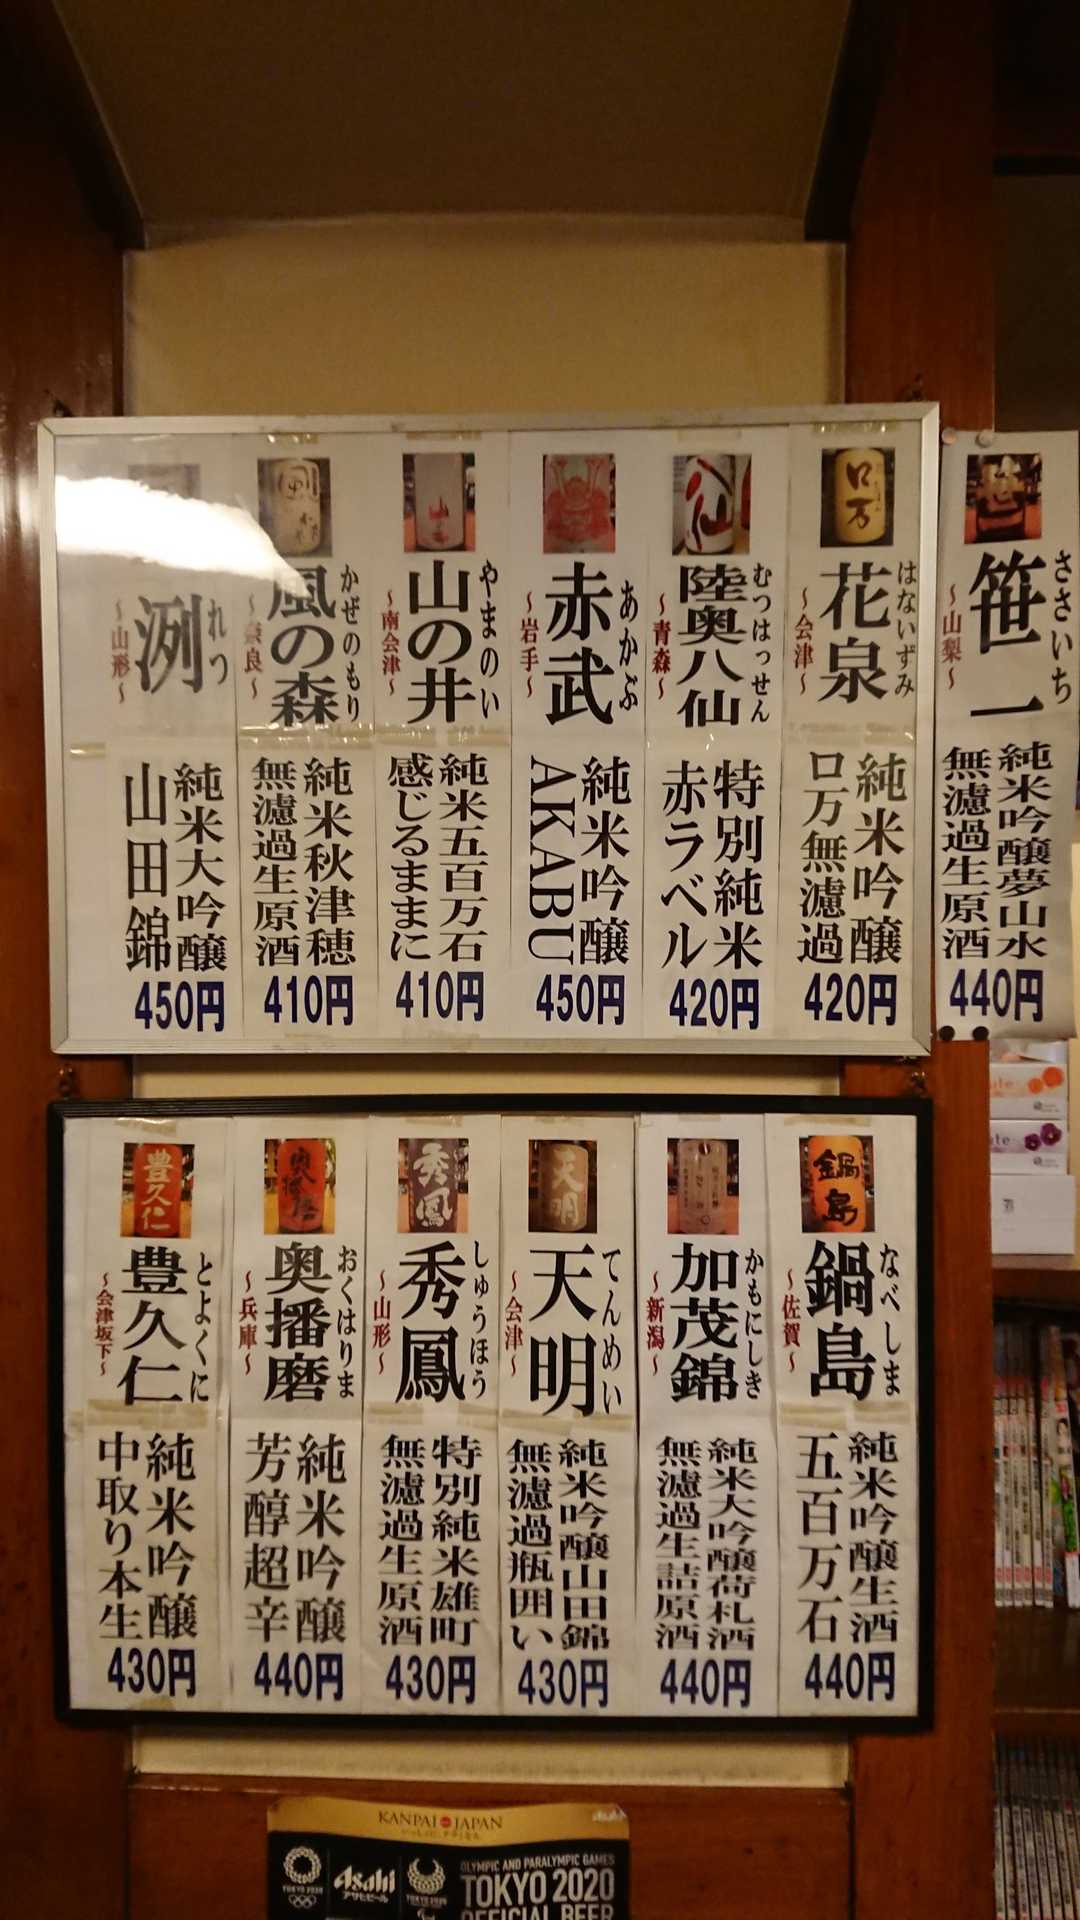 笹一
ささいち
～山梨～
純米吟醸夢山水
無濾過生原酒
440円
ロ万
花泉
はないずみ
～会津～
純米吟醸
ロ万無濾過
420円
八仙
陸奥八仙
むつはっせん
～青森～
特別純米
赤ラベル
420円
赤武
あかぶ
～岩手～
純米吟醸
AKABU
450円
山の井
やまのい
～南会津～
純米五百万石
感じるままに
410円
風の森
かぜのもり
～奈良～
純米秋津穂
無濾過生原酒
410円
洌
れつ
～山形～
純米大吟醸
山田錦
450円
鍋島
鍋島
なべしま
～佐賀～
純米吟醸生酒
五百万石
440円
加茂錦
かもにしき
～新潟～
純米大吟醸荷札酒
無濾過生詰原酒
440円
天明
天明
てんめい
～会津～
純米吟醸山田錦
無濾過瓶囲い
430円
秀鳳
秀鳳
しゅうほう
～山形～
特別純米雄町
無濾過生原酒
430円
奥播磨
奥播磨
おくはりま
～兵庫～
純米吟醸
芳醇超辛
440円
豊久仁
豊久仁
とよくに
～会津坂下～
純米吟醸
中取り本生
430円
KANPAI JAPAN
Asahi
アサヒビール
TOKYO 2020
TOKYO 2020
OLYMPIC AND PARALYMPIC GAMES
TOKYO 2020
OFFICIAL BEER